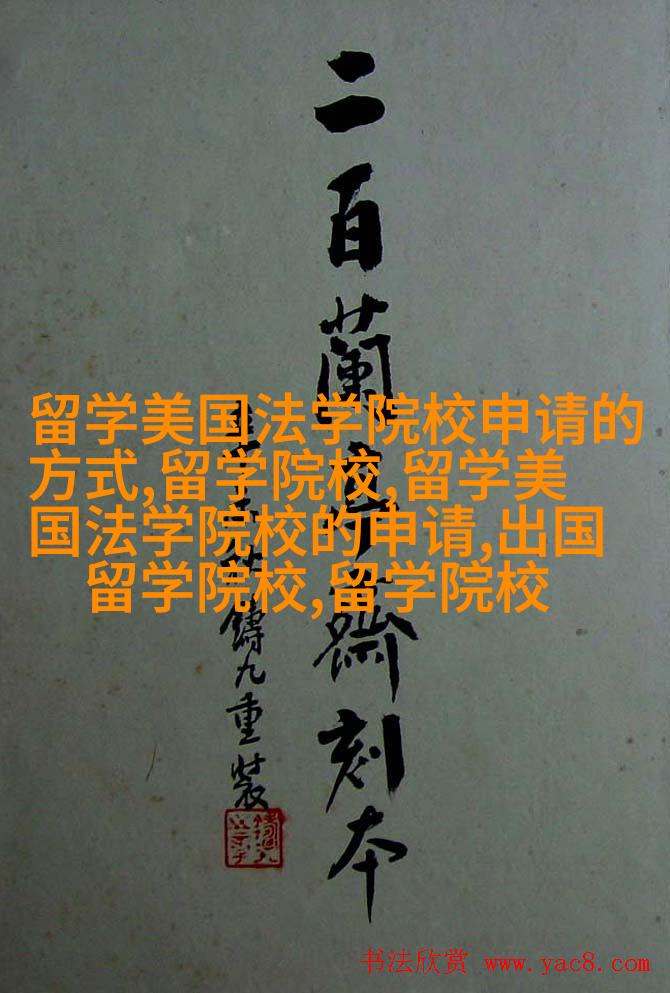 二百蘭亭齋刻本
鑄九重裝
留学美国法学院校申请的
方式,留学院校,留学美
国法学院校的申请,出国
留学院校,留学院校
书法欣赏 www.yac8.com